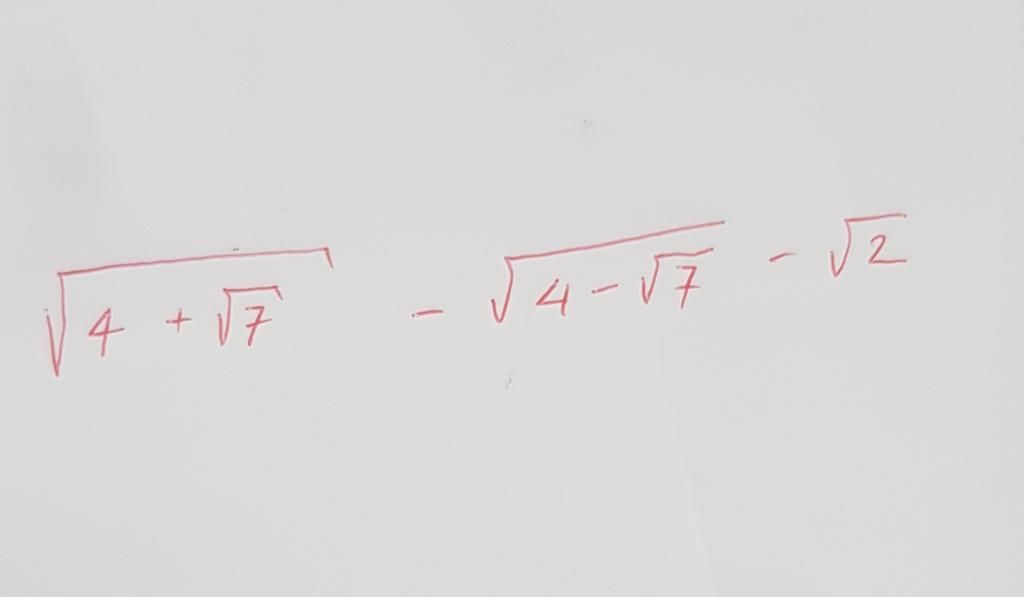 √(4 + √7) - √(4 - √7) - √2